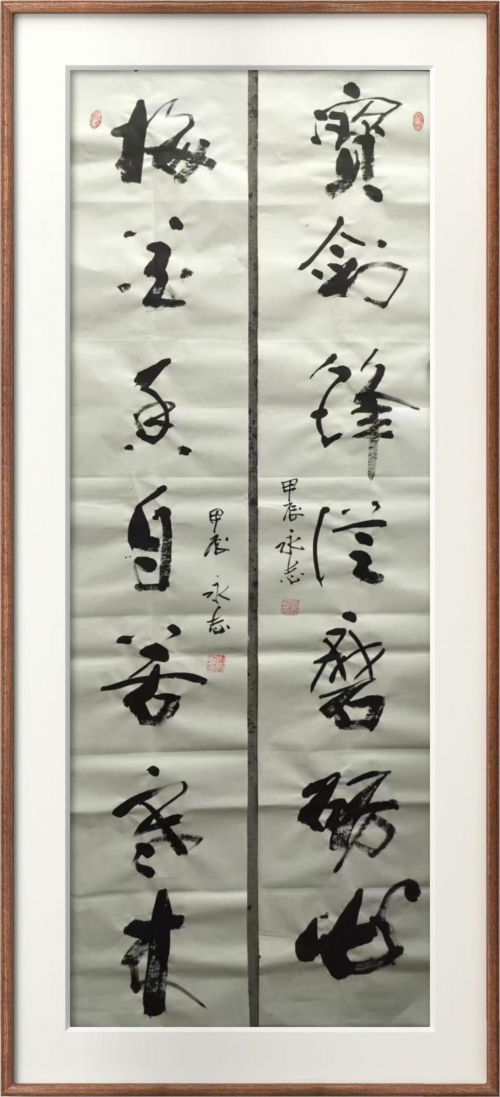 寶劍鋒從磨礪出
甲辰 永志
梅花香自苦寒來
甲辰 永志